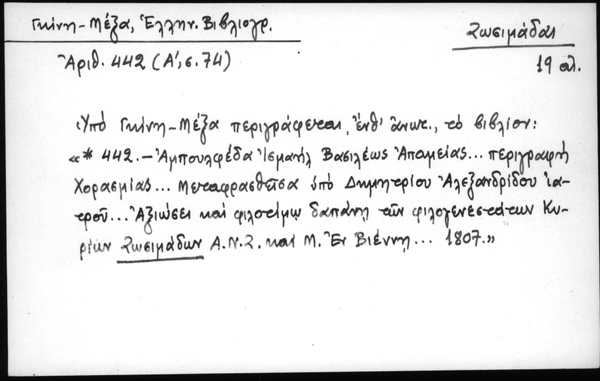 Γκίνη-Μέξα, Ἑλλην. Βιβλιογρ.
Ζωσιμάδαι
Ἀριθ. 442 (Α', σ. 74)
19 αἰ.
Ὑπό Γκίνη-Μέξα περιγράφεται, ἔνθ' ἄνωτ., τό βιβλίον:
«* 442.-Ἀμπουλφέδα Ἰσμαήλ Βασιλέως Ἀπαμείας... περιγραφή
Χορασμίας... Μεταφρασθεῖσα ὑπό Δημητρίου Ἀλεξανδρίδου ἰα-
τροῦ... Ἀξιώσει καί φιλοτίμῳ δαπάνῃ τῶν φιλογενεστάτων Κυ-
ρίων Ζωσιμάδων Α.Ν.Ζ. καί Μ. Ἐν Βιέννῃ... 1807.»